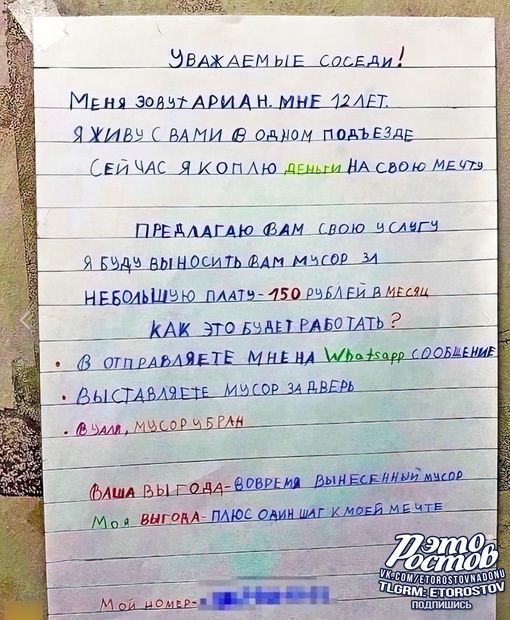 УВАЖАЕМЫЕ СОСЕДИ!
МЕНЯ ЗОВУТ АРИАН. МНЕ 12 ЛЕТ.
Я ЖИВУ С ВАМИ В ОДНОМ ПОДЪЕЗДЕ
СЕЙЧАС Я КОПЛЮ ДЕНЬГИ НА СВОЮ МЕЧТУ
ПРЕДЛАГАЮ ВАМ СВОЮ УСЛУГУ
Я БУДУ ВЫНОСИТЬ ВАМ МУСОР ЗА
НЕБОЛЬШУЮ ПЛАТУ-150 РУБЛЕЙ В МЕСЯЦ
КАК ЭТО БУДЕТ РАБОТАТЬ?
• В ОТПРАВЛЯЕТЕ МНЕ НА Whatsapp СООБЩЕНИЕ
• ВЫСТАВЛЯЕТЕ МУСОР ЗА ДВЕРЬ
• ВУАЛЯ, МУСОР УБРАН
ВАША ВЫГОДА-ВОВРЕМЯ ВЫНЕСЕННЫЙ МУСОР
МОЯ ВЫГОДА-ПЛЮС ОДИН ШАГ К МОЕЙ МЕЧТЕ
МОЙ НОМЕР-
Это Ростов
VK.COM/ETOROSTOVNADONU
TLGRM: ETOROSTOV
ПОДПИШИСЬ